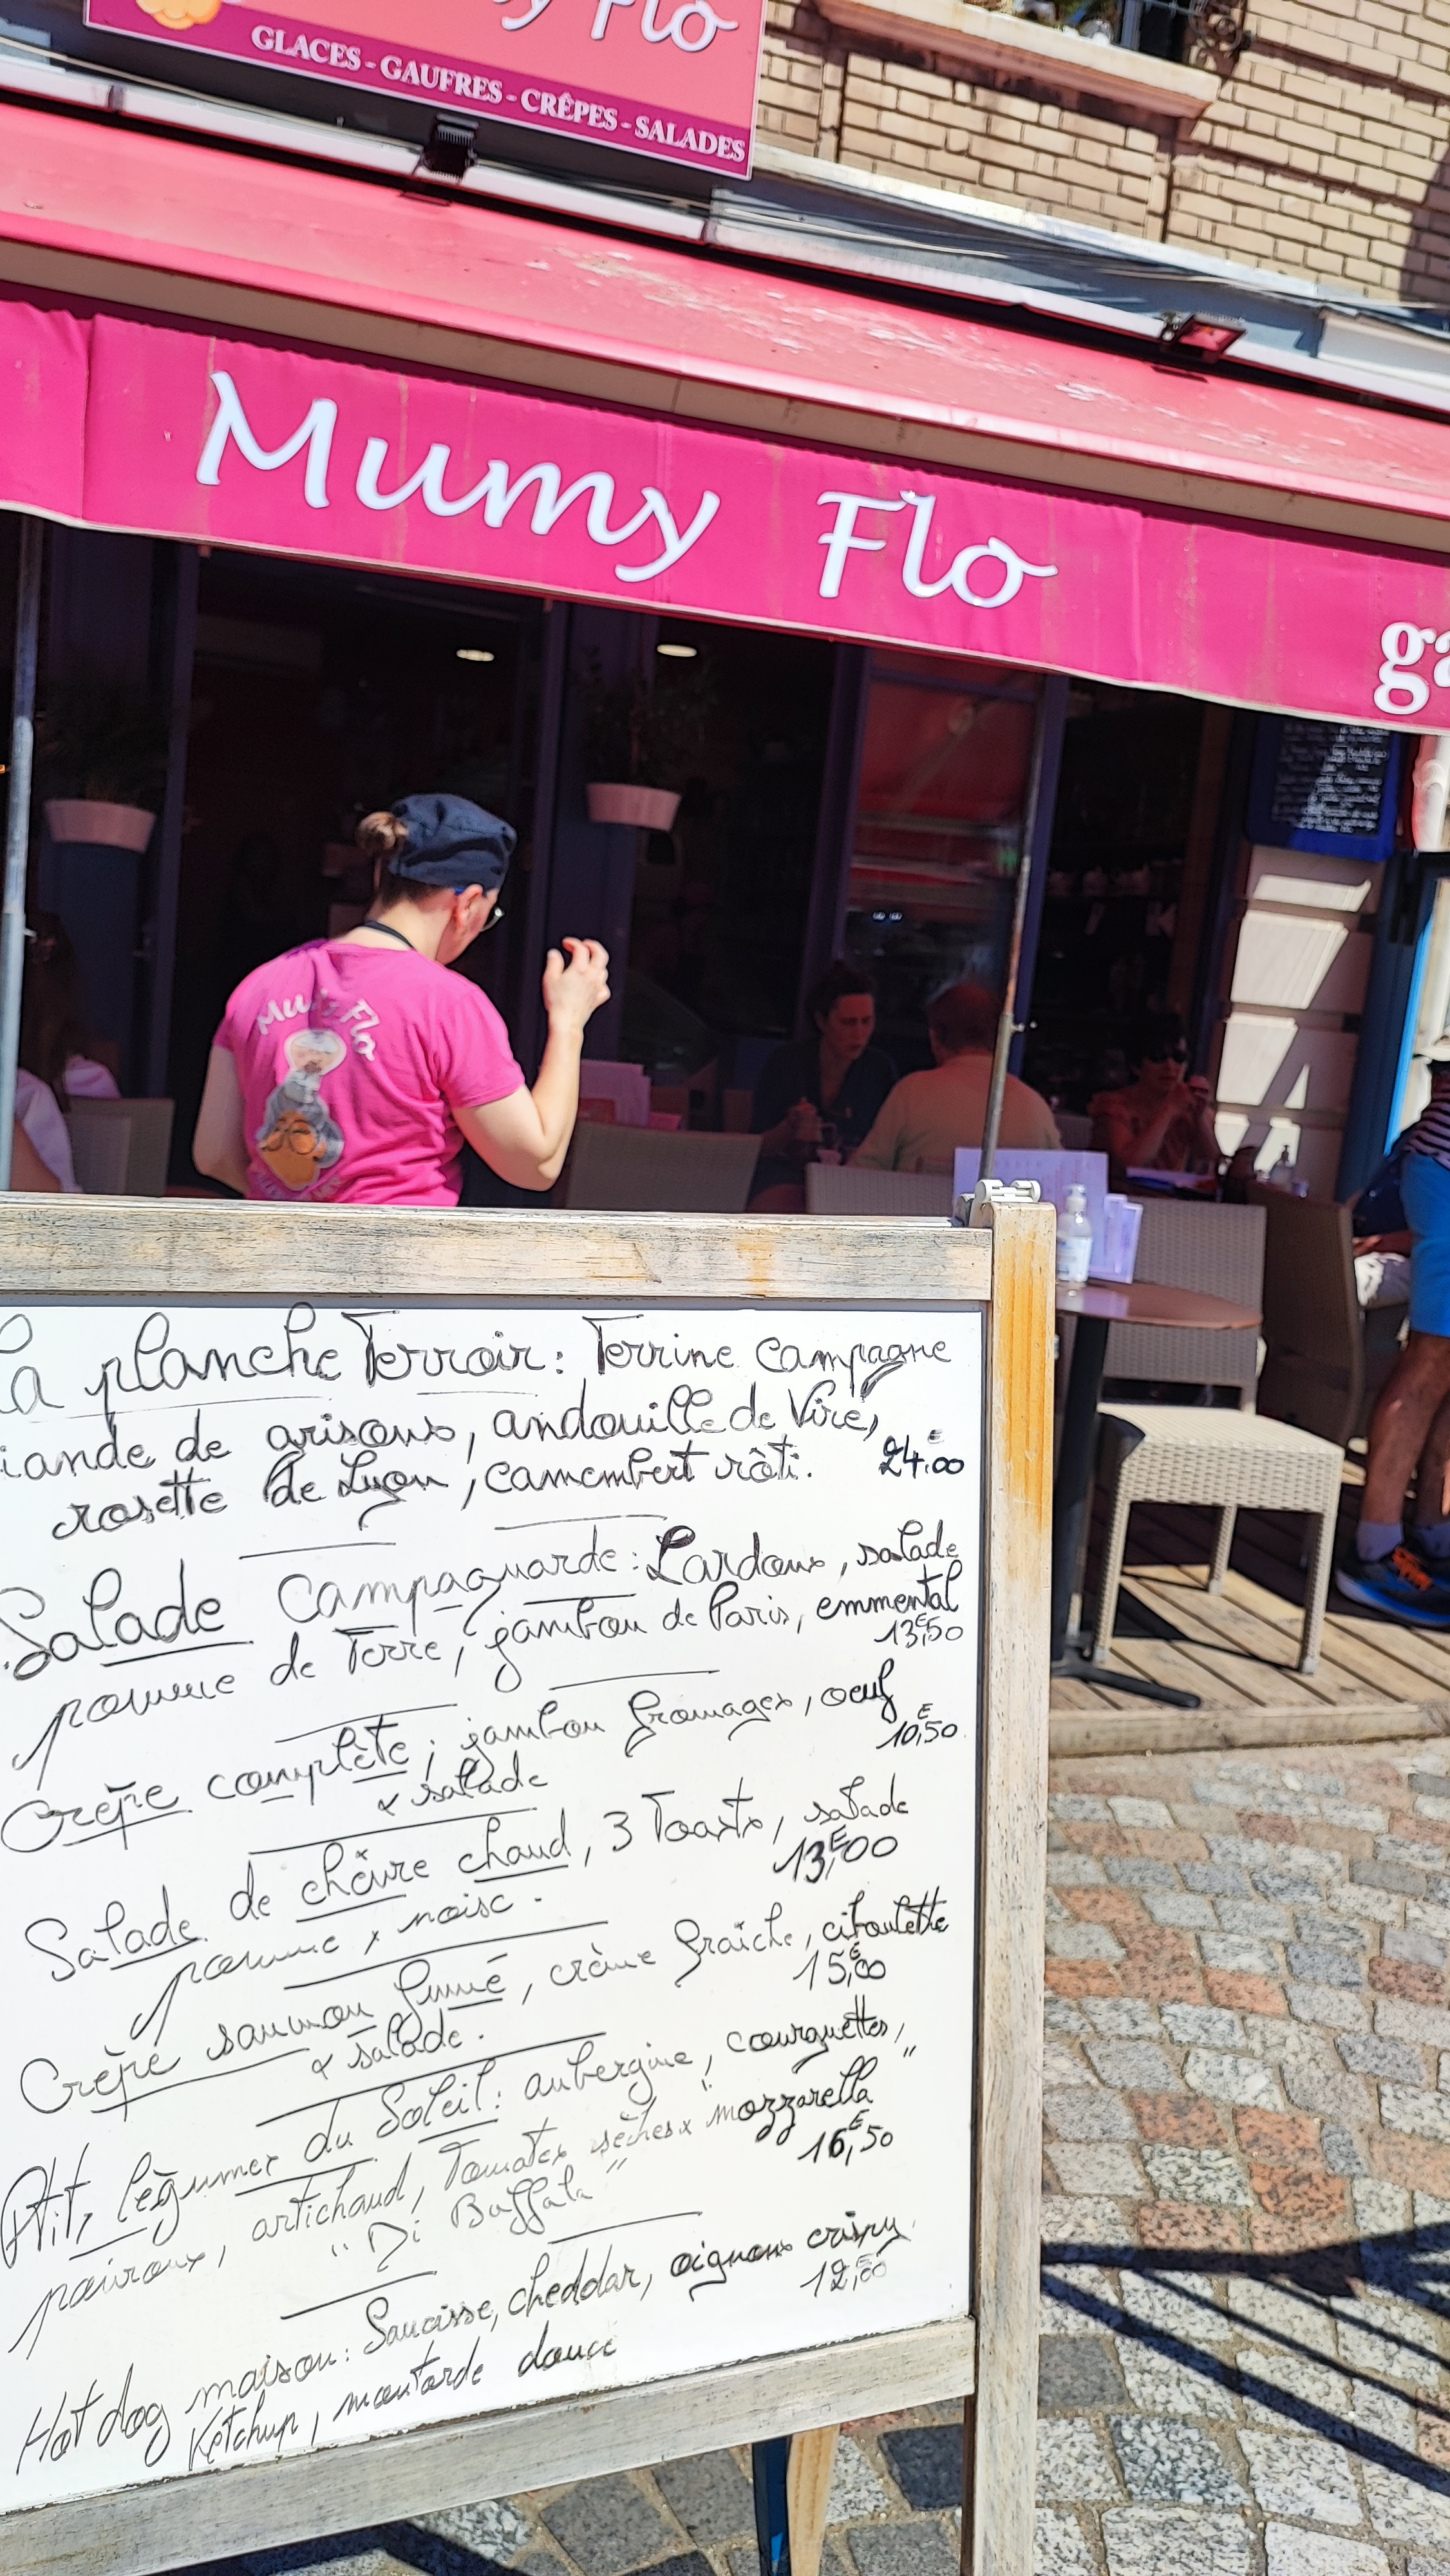 y Flo
GLACES - GAUFRES - CRÊPES - SALADES
Mumy Flo
ga
Mumy Flo
La planche Terroir: Terrine campagne
iande de grisons, andouille de Vire,
rosette de Lyon, camembert rôti. 24€00
Salade Campagnarde: Lardons, salade
pomme de Terre, jambon de Paris, emmental
13€50
Crêpe complète; jambon fromages, oeuf
& salade 10€50
Salade de chèvre chaud, 3 Toasts, salade
pomme x noise. 13,€00
Crêpe saumon fumé, crème fraîche, ciboulette
& salade. 15,€00
Ptit, légumes du Soleil: aubergine, courguettes,
poivrons, artichaud, Tomates sèches x "mozzarella"
"Di Buffala" 16,€50
Hot dog maison: Saucisse, cheddar, oignons crispy.
Ketchup, moutarde douce 12,€00